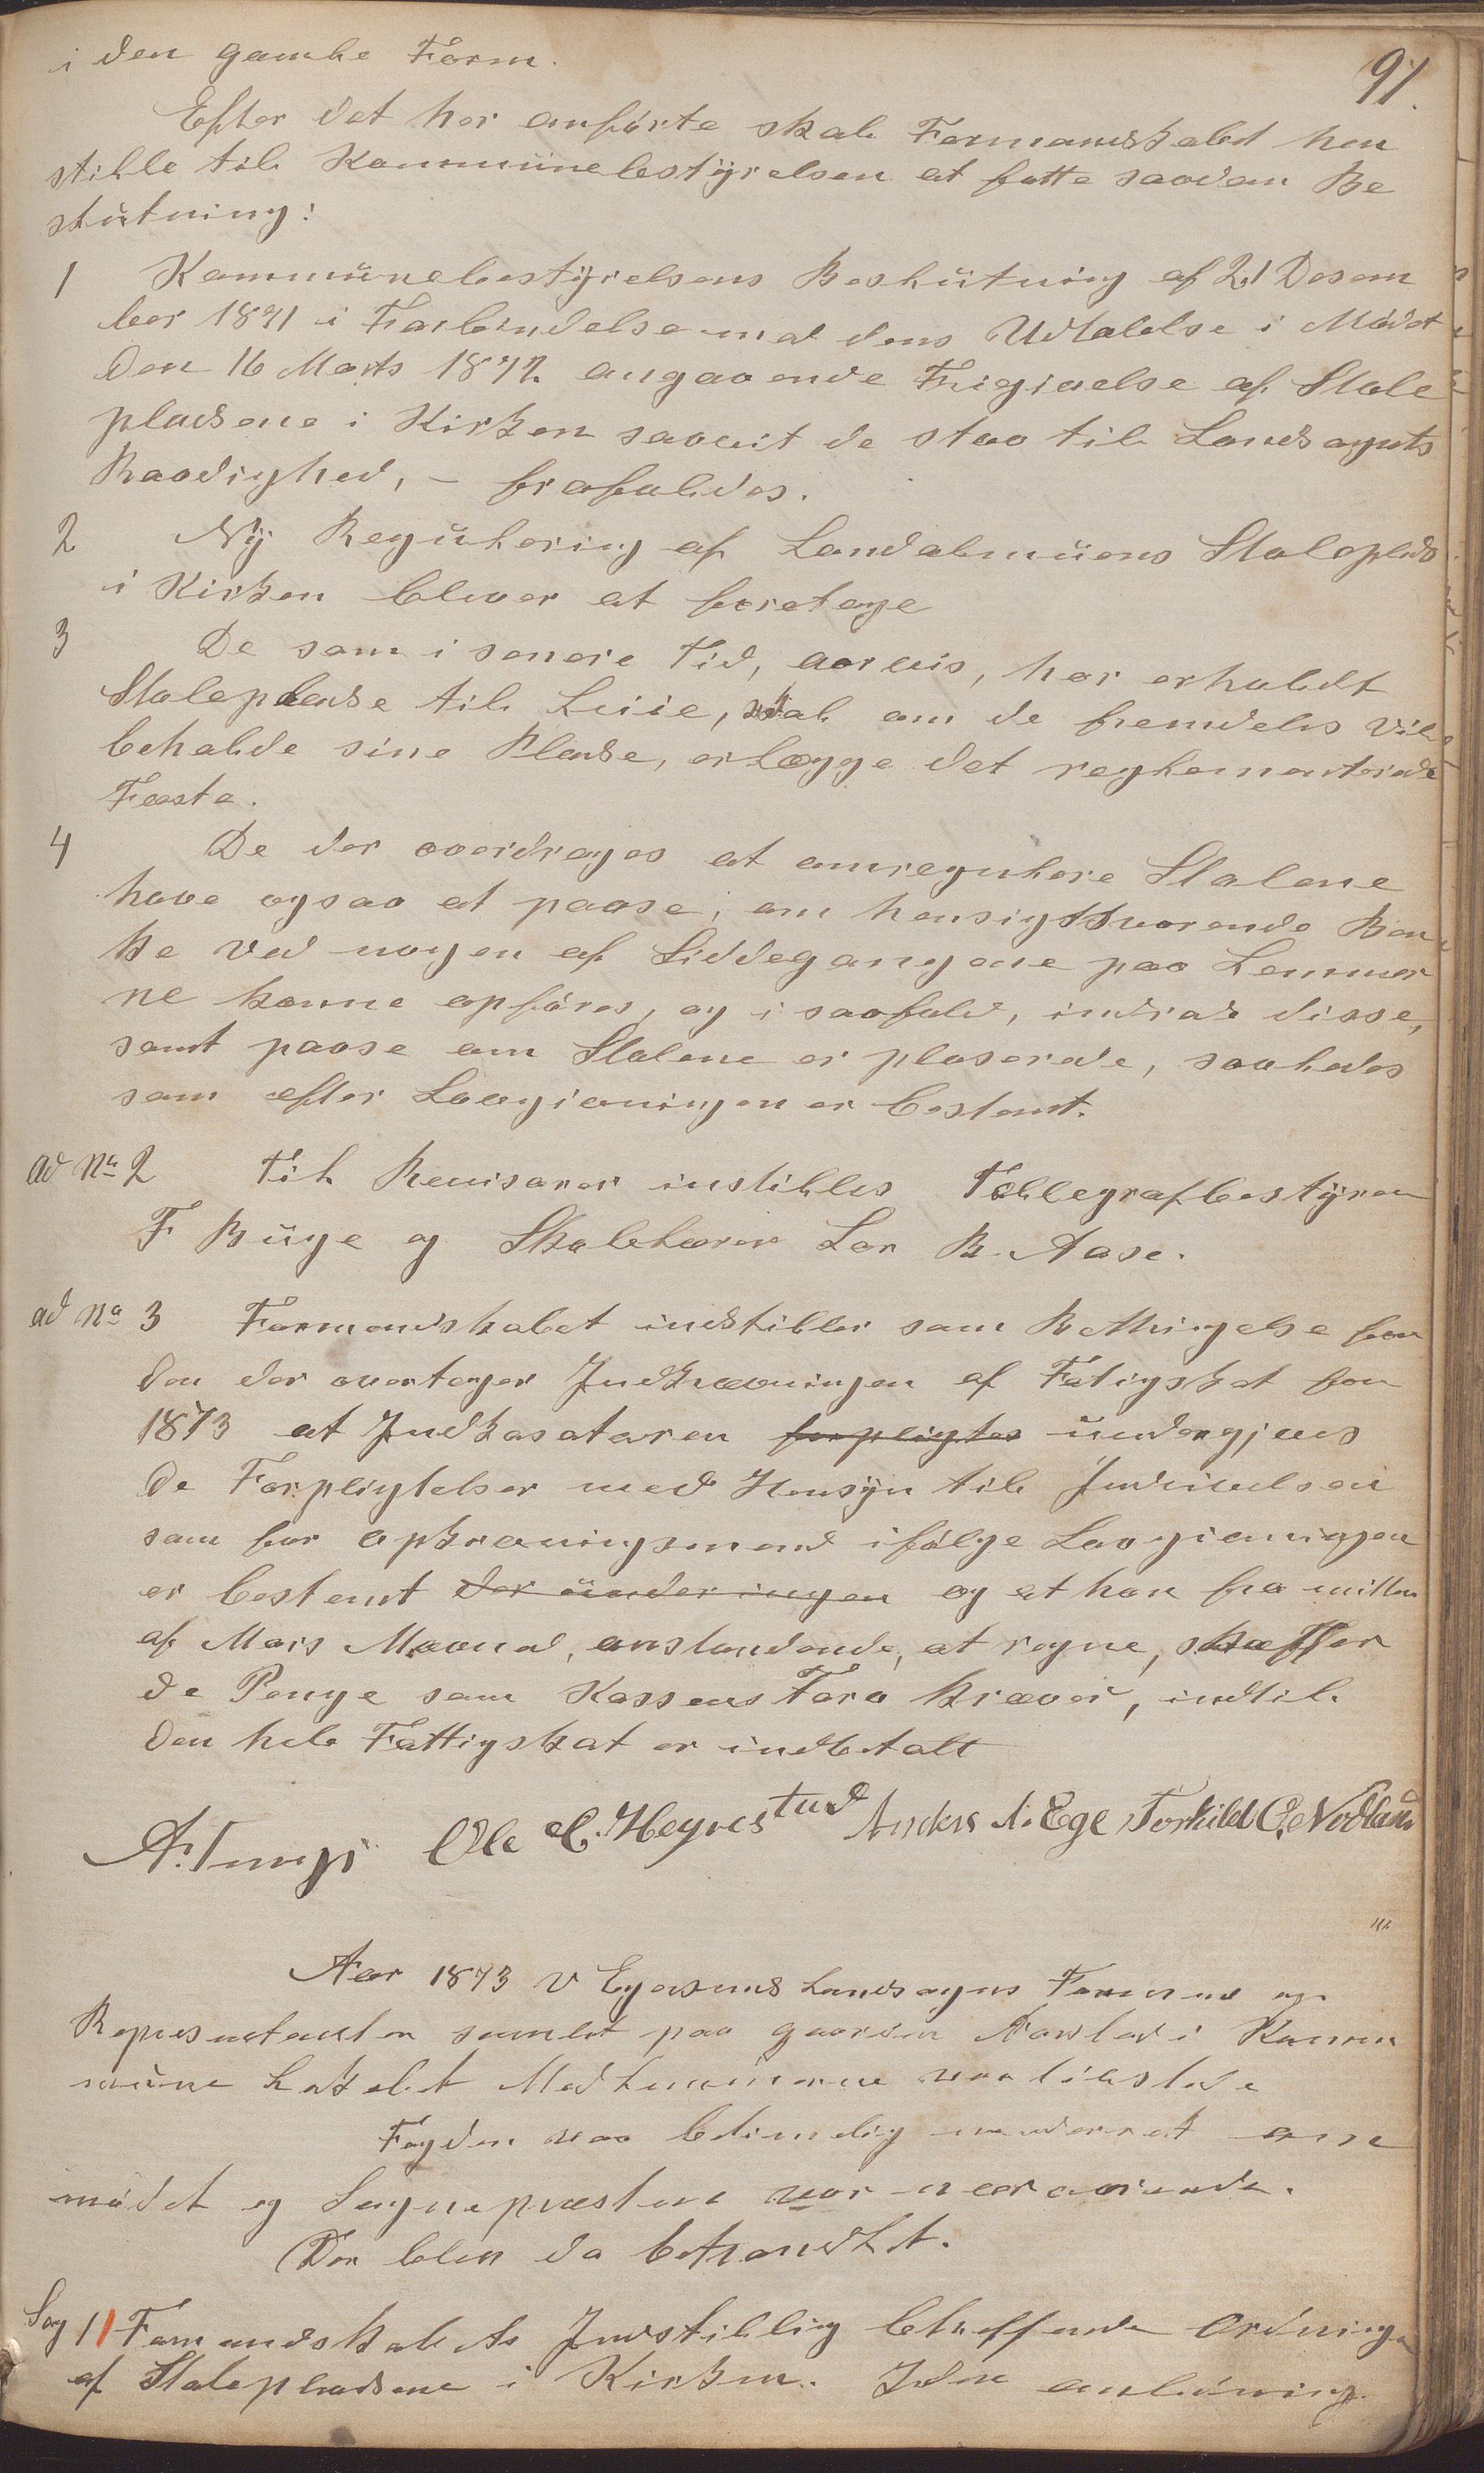 91.
i den gamle Form.
Efter det her anførte skal Formandskabet hen
stille til Kommünebestÿrelsen at fatte saadan Be
slütning:
1 Kommünebestÿrelsens Beslütning af 21 Desem
ber 1871 i Forbindelse med dens Udtalelse i Mødet
den 16 Marts 1872 angaaende Frigivelse af Stole
pladsene i Kirken saavit de staa til Landsognts
Raadighed, – frafaldes.
2 Nÿ Regülering af Landalmüens Stoleplads
i Kirken bliver at foretage
3 De som i senere Tid, aarvis, har erholdt
Stolepladse til Leiie, skal om de fremdeles vil
beholde sine Pladse, erlægge det reglementerede
Fæste.
4 De der overdrages at omregulere Stolene
have ogsaa at paase, om hensigtsvarende Ben
ke ved nogen af Siddegangene paa Lemmer
ne kunne opføres, og i saafald, indrede disse,
samt paase om Stolene er plaserede, saaledes
som efter Lovgivningen er bestemt.
ad No 2 Til Revisorer instilles Tellegrafbestÿrer
F Büge og Skolelærer Lar B. Aase.
ad No 3 Formandskabet indstiller som Bethingelse for
den der overtager Indkrævningen af Fatigskat for
1873 at Indkasataren forpligtes ündergives
de Forpligtelser med Hensÿn til Indrivelsen
som for opkrævningsmend ifølge Lovgivningen
er bestemt der ünder ingen og at han fra mitten
af Mais Maaned, anstundende, at regne, skaffer
de Penge som Kassens Tarv kræver, indtil
den hele Fattigskat er indbetalt
A. Tengs Ole C. Hegrestad Anders A. Ege Torkild O. Nodland
Aar 1873 v Egersund Landsogns Formend og
Representanter samlet paa gaarden Aarstad i Komm
üne lokalet Medlemmerne var tilstede
Fogden var betimelig underret om
mødet og Sognepræsten var nærværende.
Der blev da behandlet.
Sag 1 Formandskabets Indstilling betreffende Ordningen
af Stolepladsene i Kirken. I den anledning